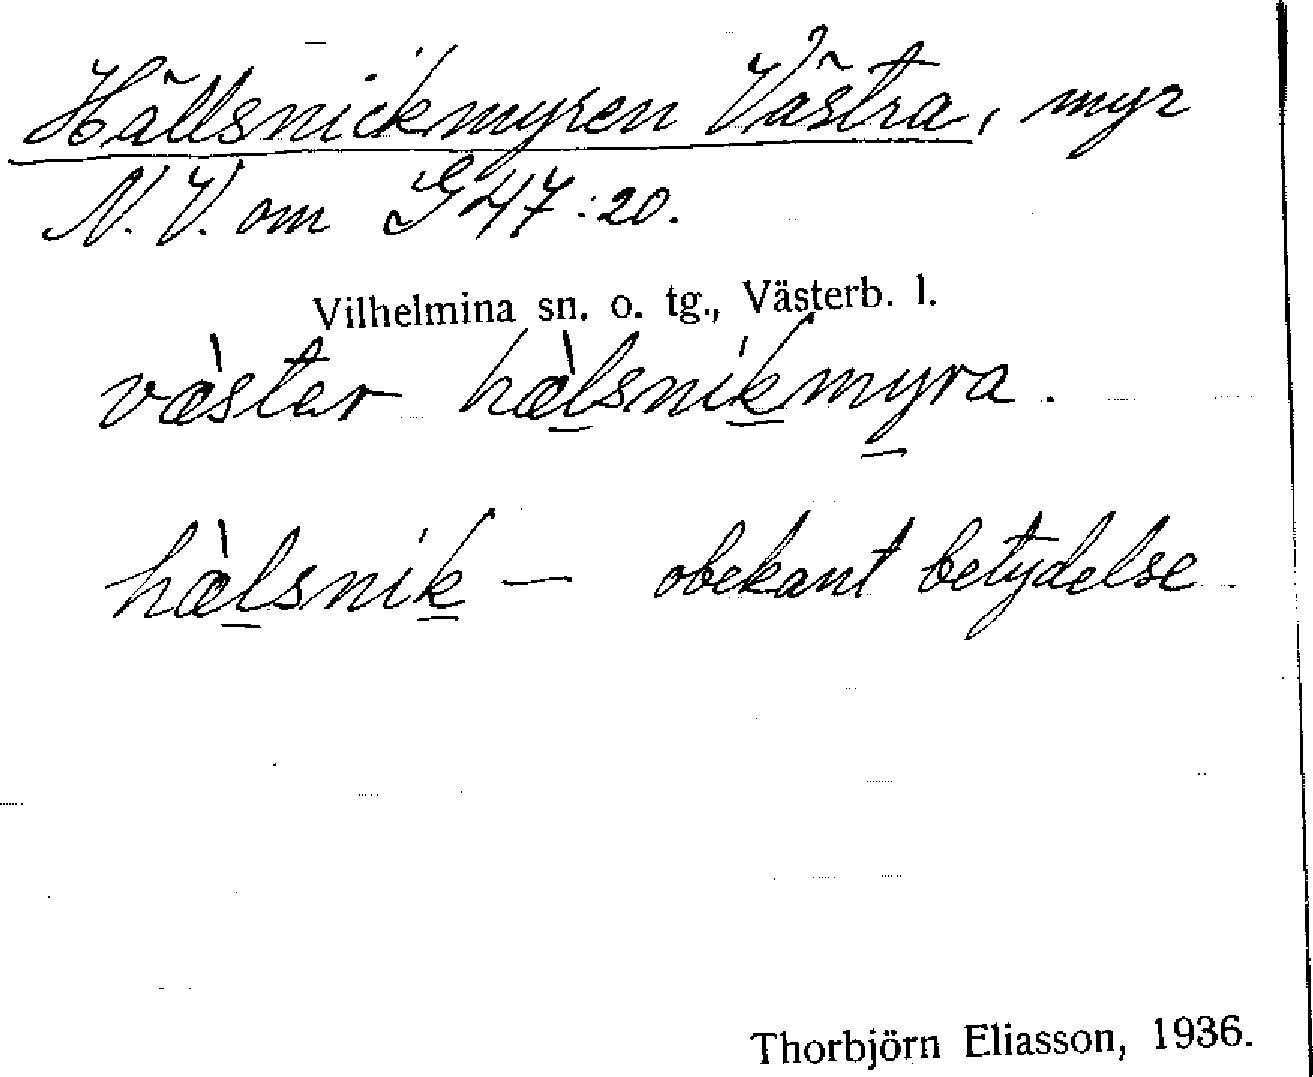 Hällsnickmyren Västra, myr
N.V. om G47:20.
Vilhelmina sn. o. tg., Västerb. l.
væ̀ster hæ̀lsnikmyra.
hæ̀lsnik — obekant betydelse
Thorbjörn Eliasson, 1936.